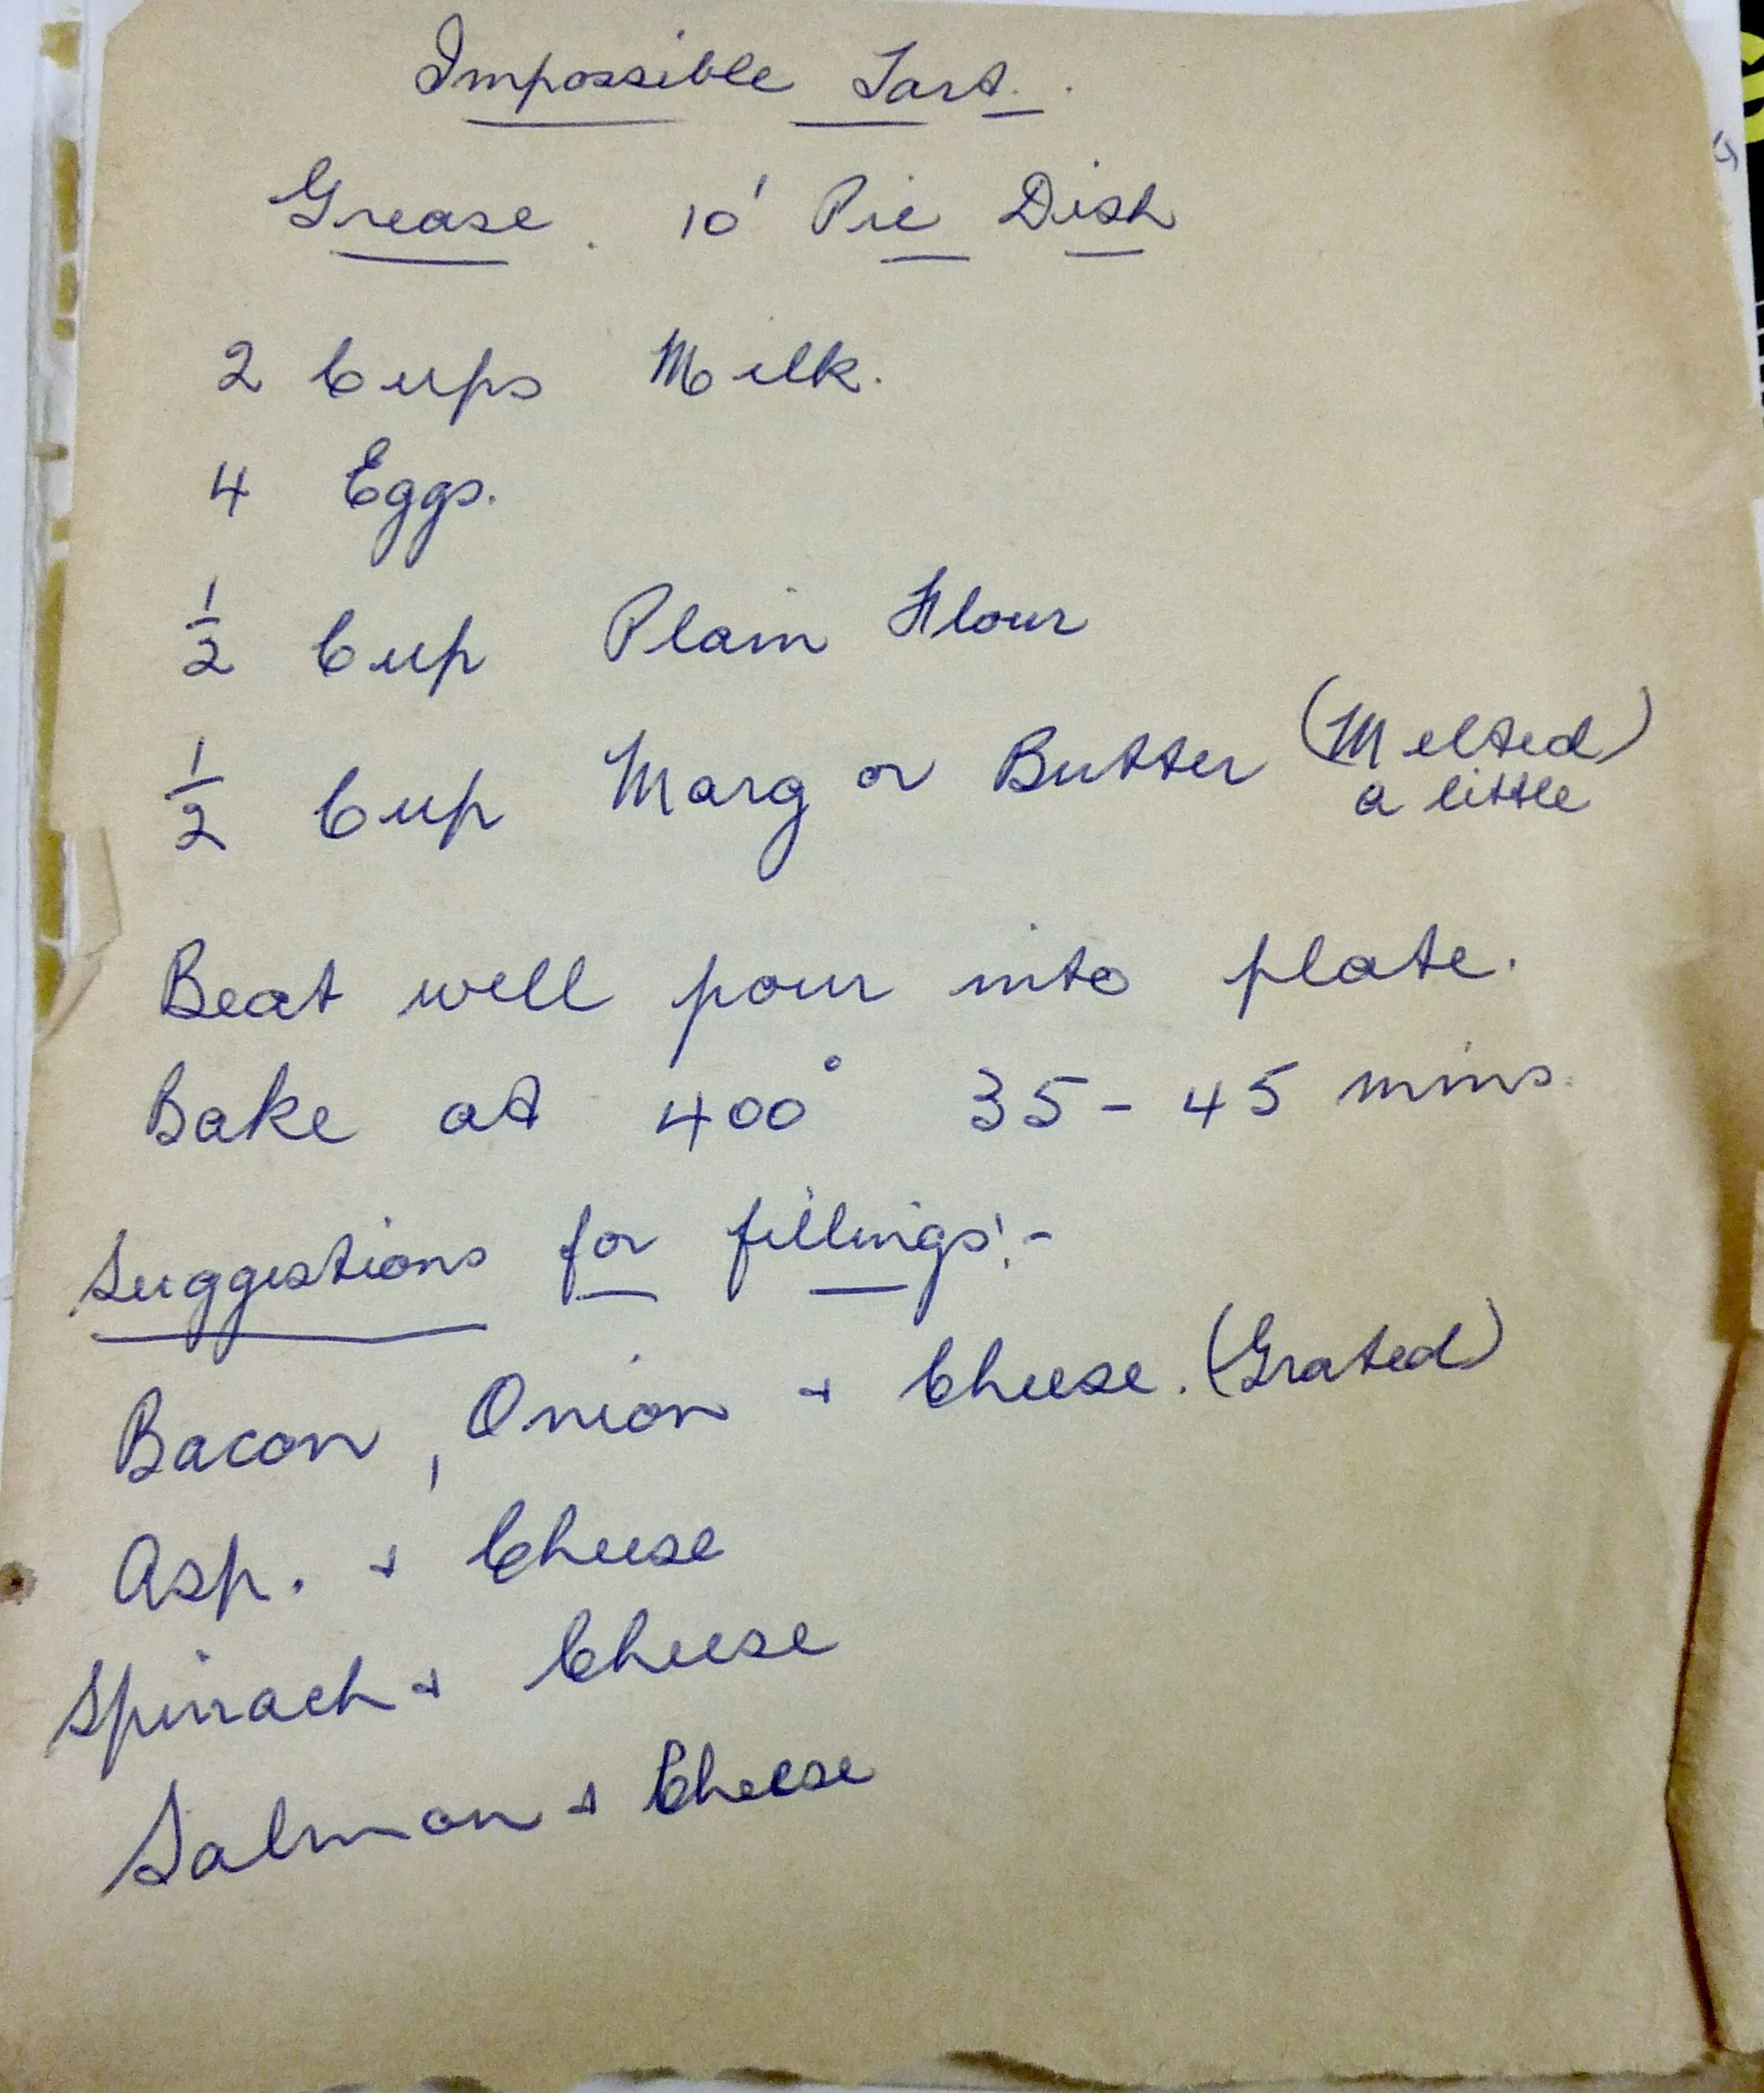 Impossible Tart.
Grease. 10' Pie Dish
2 Cups Milk.
4 Eggs.
1/2 Cup Plain Flour
1/2 Cup Marg or Butter (Melted)
a little
Beat well pour into plate.
Bake at 400° 35-45 mins.
Suggestions for fillings:-
Bacon, Onion + Cheese. (Grated)
Asp. + Cheese
Spinach + Cheese
Salmon + Cheese